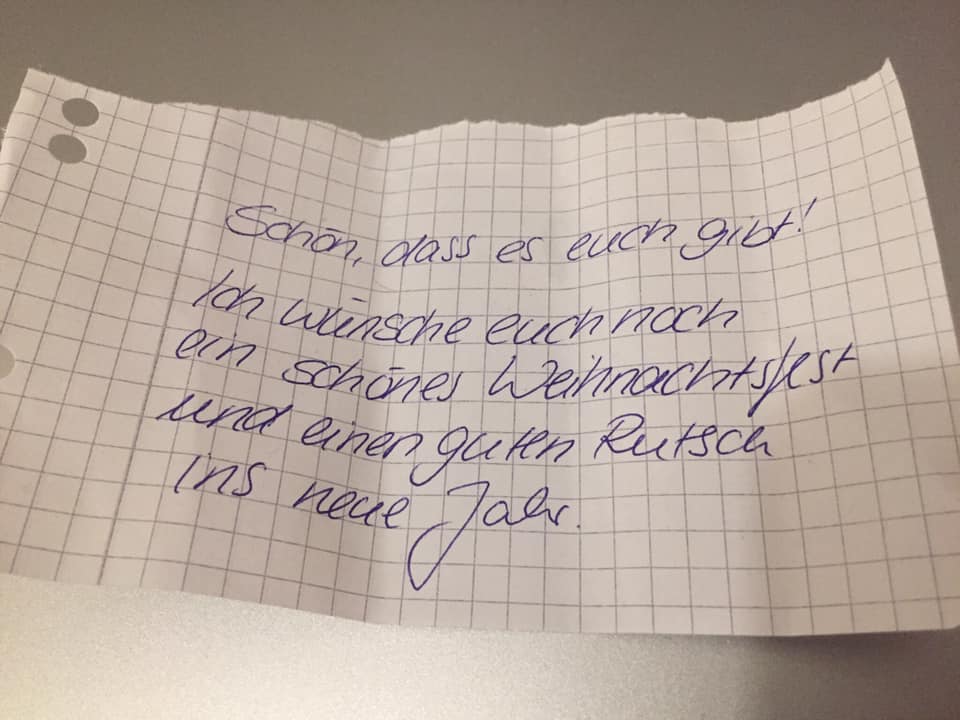 Schön, dass es euch gibt!
Ich wünsche euch noch
ein schönes Weihnachtsfest
und einen guten Rutsch
ins neue Jahr.